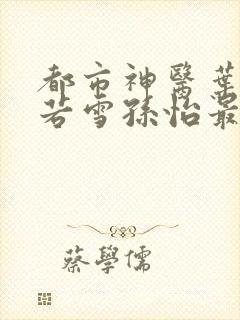 都市神醫葉
若雪孫怡最
蔡學儒